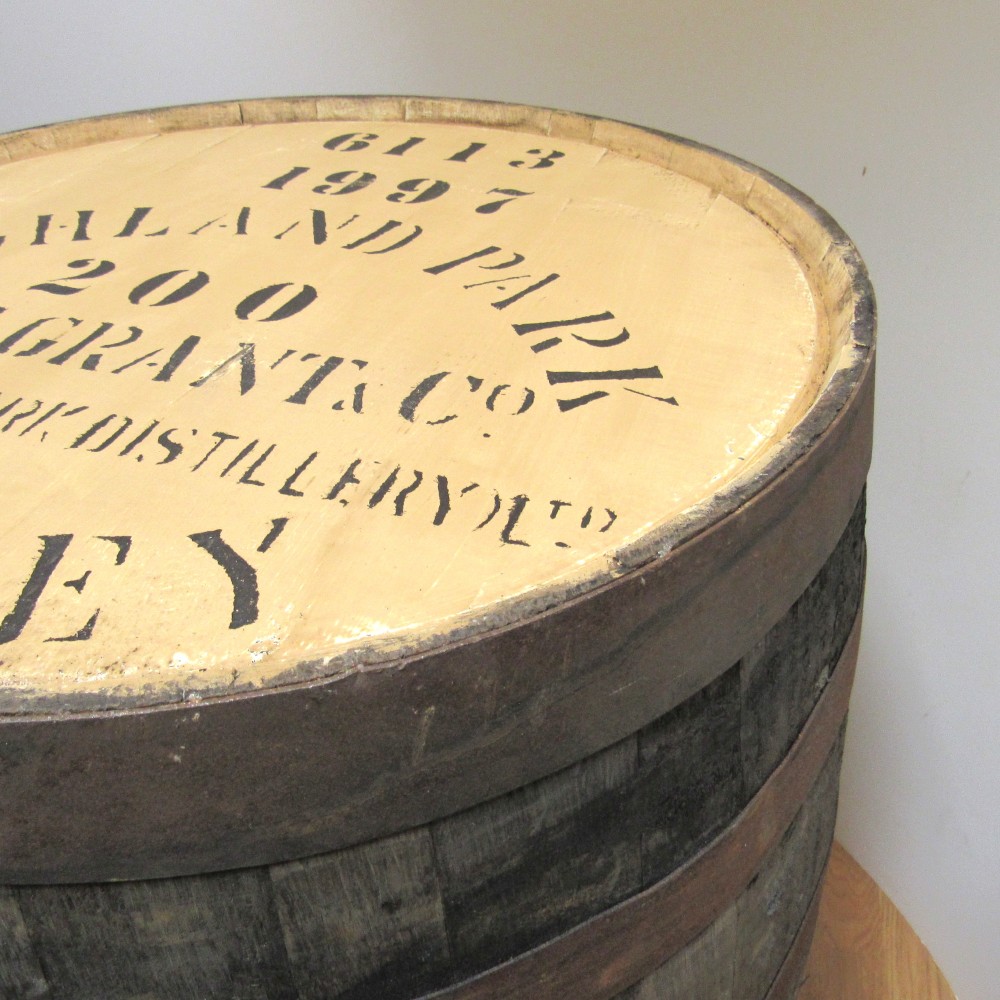 6113
1997
HLAND PARK
200
GRANT & Co
ARK DISTILLERY LTD
EY